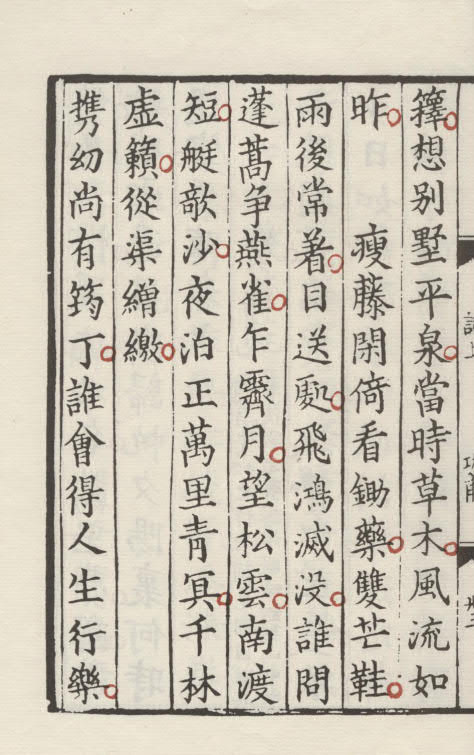 籜想别墅平泉當時草木風流如
昨　　瘦藤閑倚看鋤藥雙芒鞋
雨後常着目送處飛鴻滅没誰問
蓬蒿争燕雀乍霽月望松雲南渡
短艇欹沙夜泊正萬里青冥千林
虚籟從渠繒繳
携幼尚有筠丁誰會得人生行樂